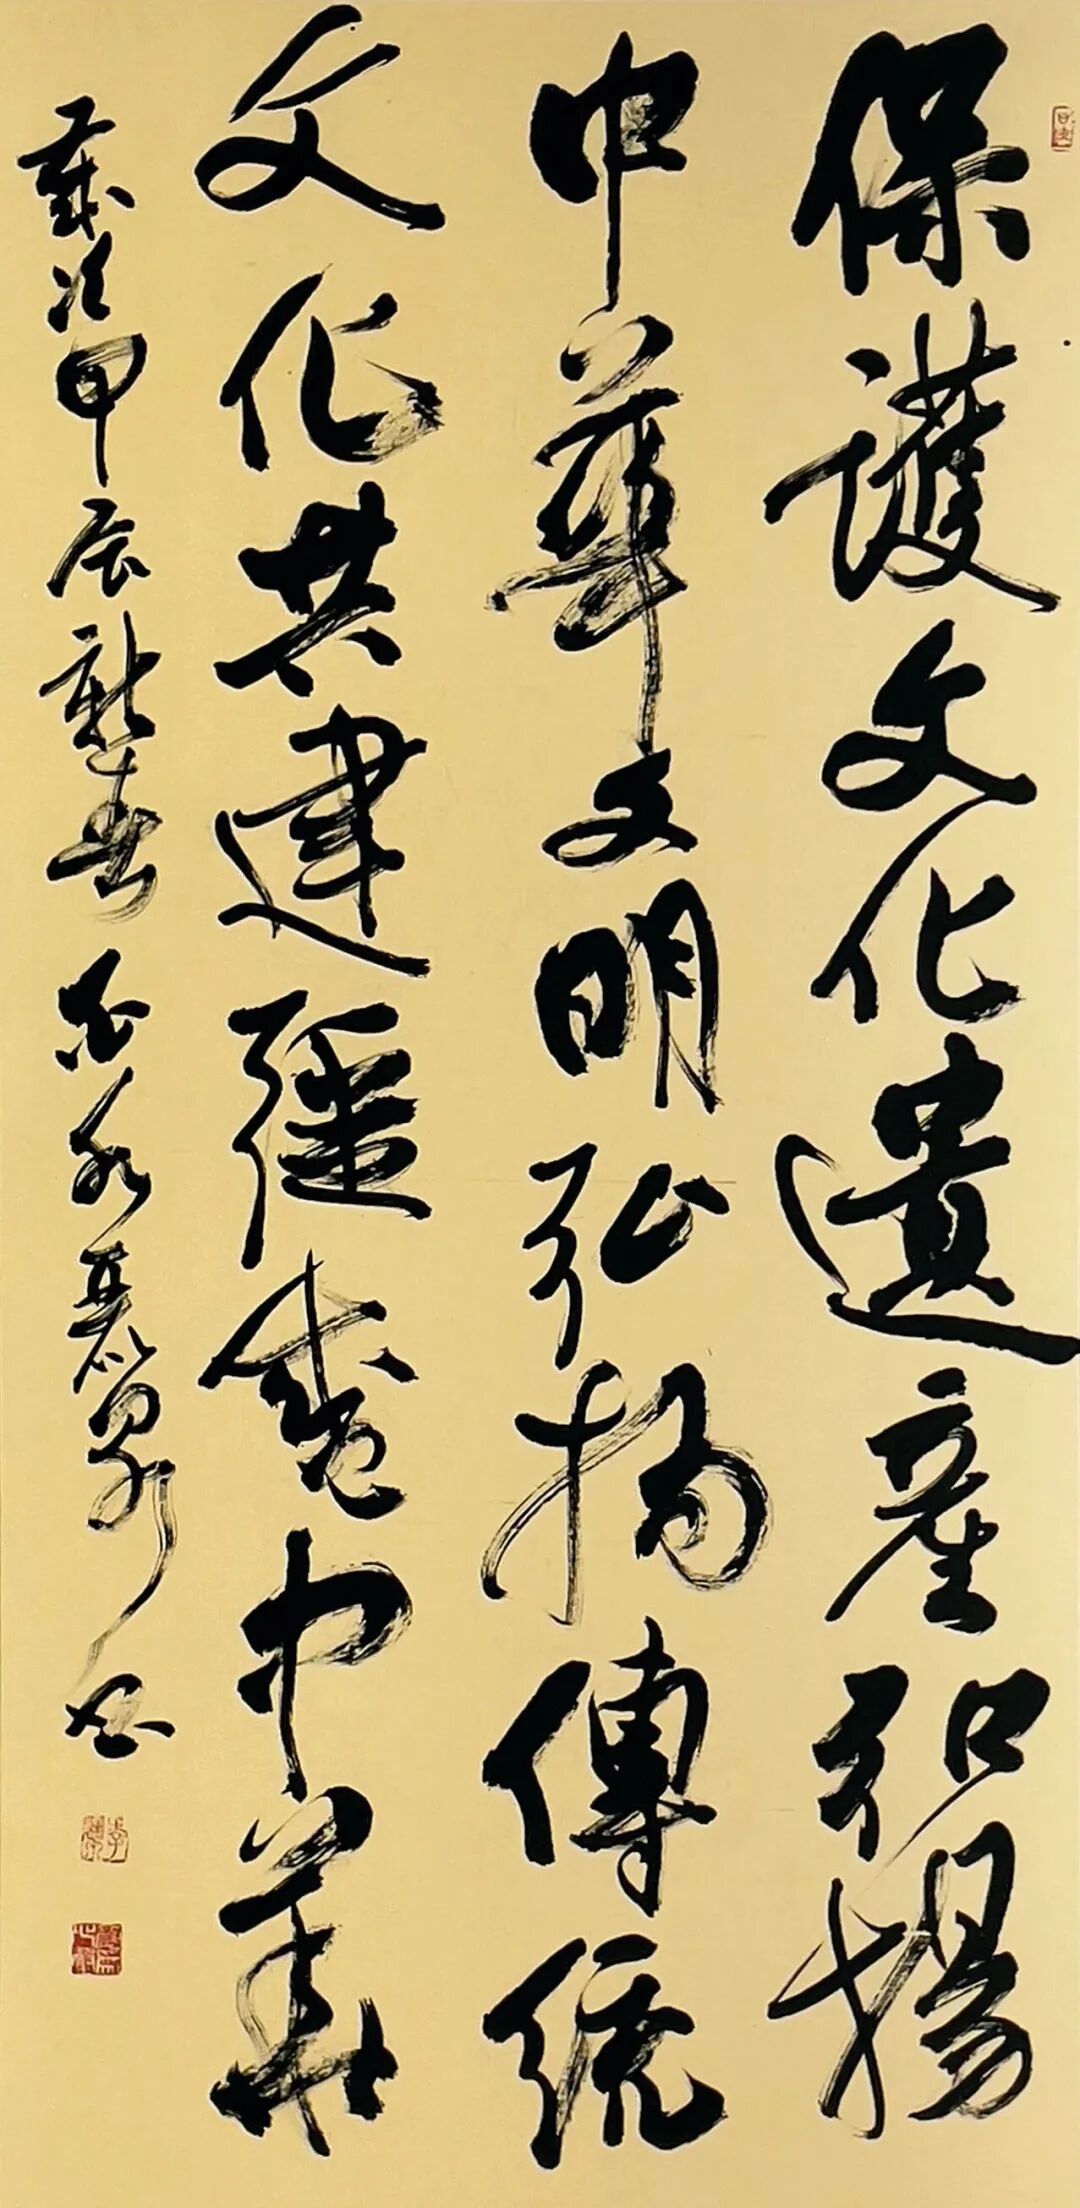 保護文化遺產弘揚
中華文明弘揚傳統
文化共建彊盛中華
歲次甲辰新春